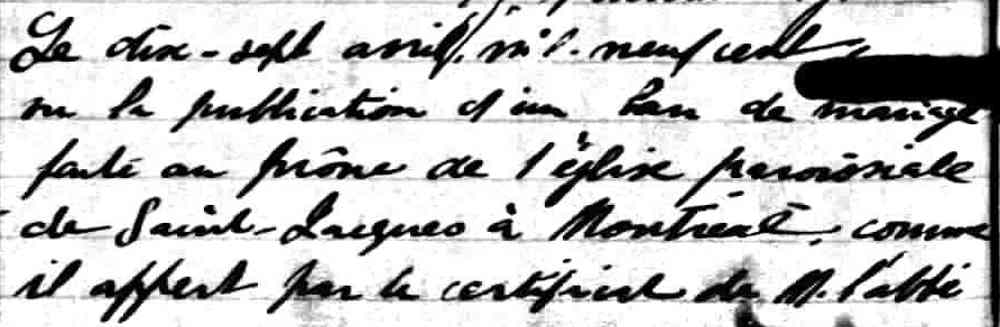 Le dix-sept avril, mil-neuf cent
vu la publication d'un ban de mariage
faite au prône de l'église paroissiale
de Saint-Jacques à Montréal, comme
il appert par le certificat de M. l'abbé